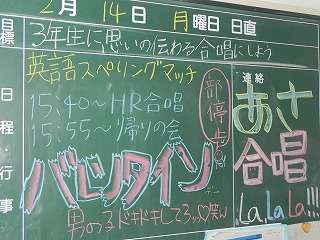 2月 14日 月曜日 日直
目標 3年生に思いの伝わる合唱にしよう
日程・行事
英語スペリングマッチ
15:40〜HR合唱
15:55〜帰りの会
部停止
バレンタイン
男の子ドキドキしてるッ♡笑
連絡
あさ
合唱
La,La,La!!!